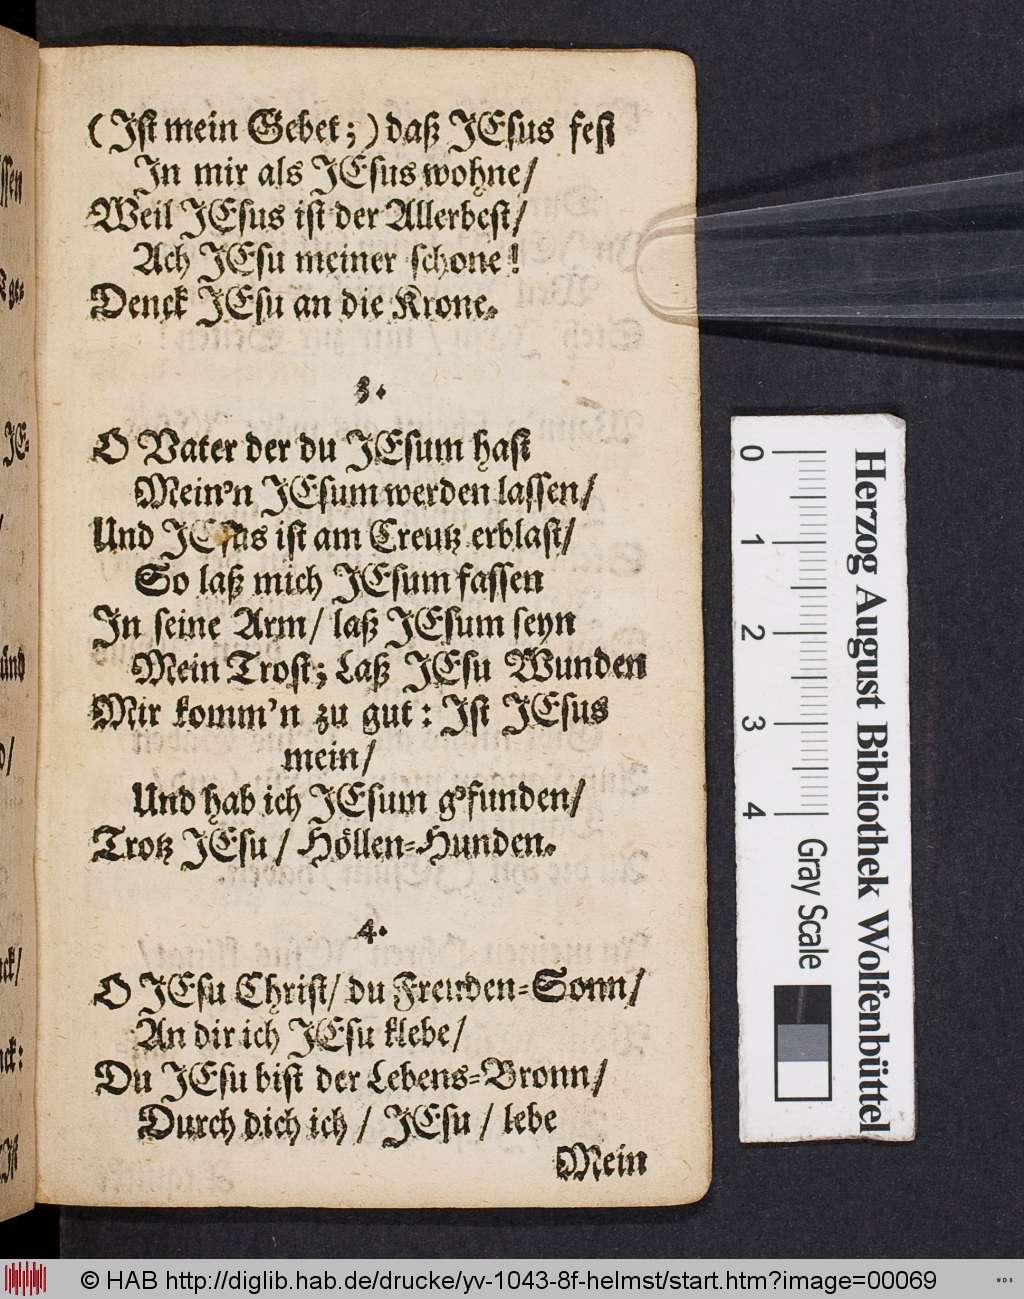 (Ist mein Gebet;) daß JEsus fest
In mir als JEsus wohne/
Weil JEsus ist der Allerbest/
Ach JEsu meiner schone!
Denck JEsu an die Krone.
3.
O Vater der du JEsum hast
Mein'n JEsum werden lassen/
Und JEsus ist am Creutz erblast/
So laß mich JEsum fassen
In seine Arm/ laß JEsum seyn
Mein Trost; Laß JEsu Wunden
Mir komm'n zu gut: Ist JEsus
mein/
Und hab ich JEsum g'funden/
Trotz JEsu/ Höllen-Hunden.
4.
O JEsu Christ/ du Freuden-Sonn/
An dir ich JEsu klebe/
Du JEsu bist der Lebens-Bronn/
Durch dich ich/ JEsu/ lebe
Mein
Herzog August Bibliothek Wolfenbüttel
0 1 2 3 4 Gray Scale
© HAB http://diglib.hab.de/drucke/yv-1043-8f-helmst/start.htm?image=00069